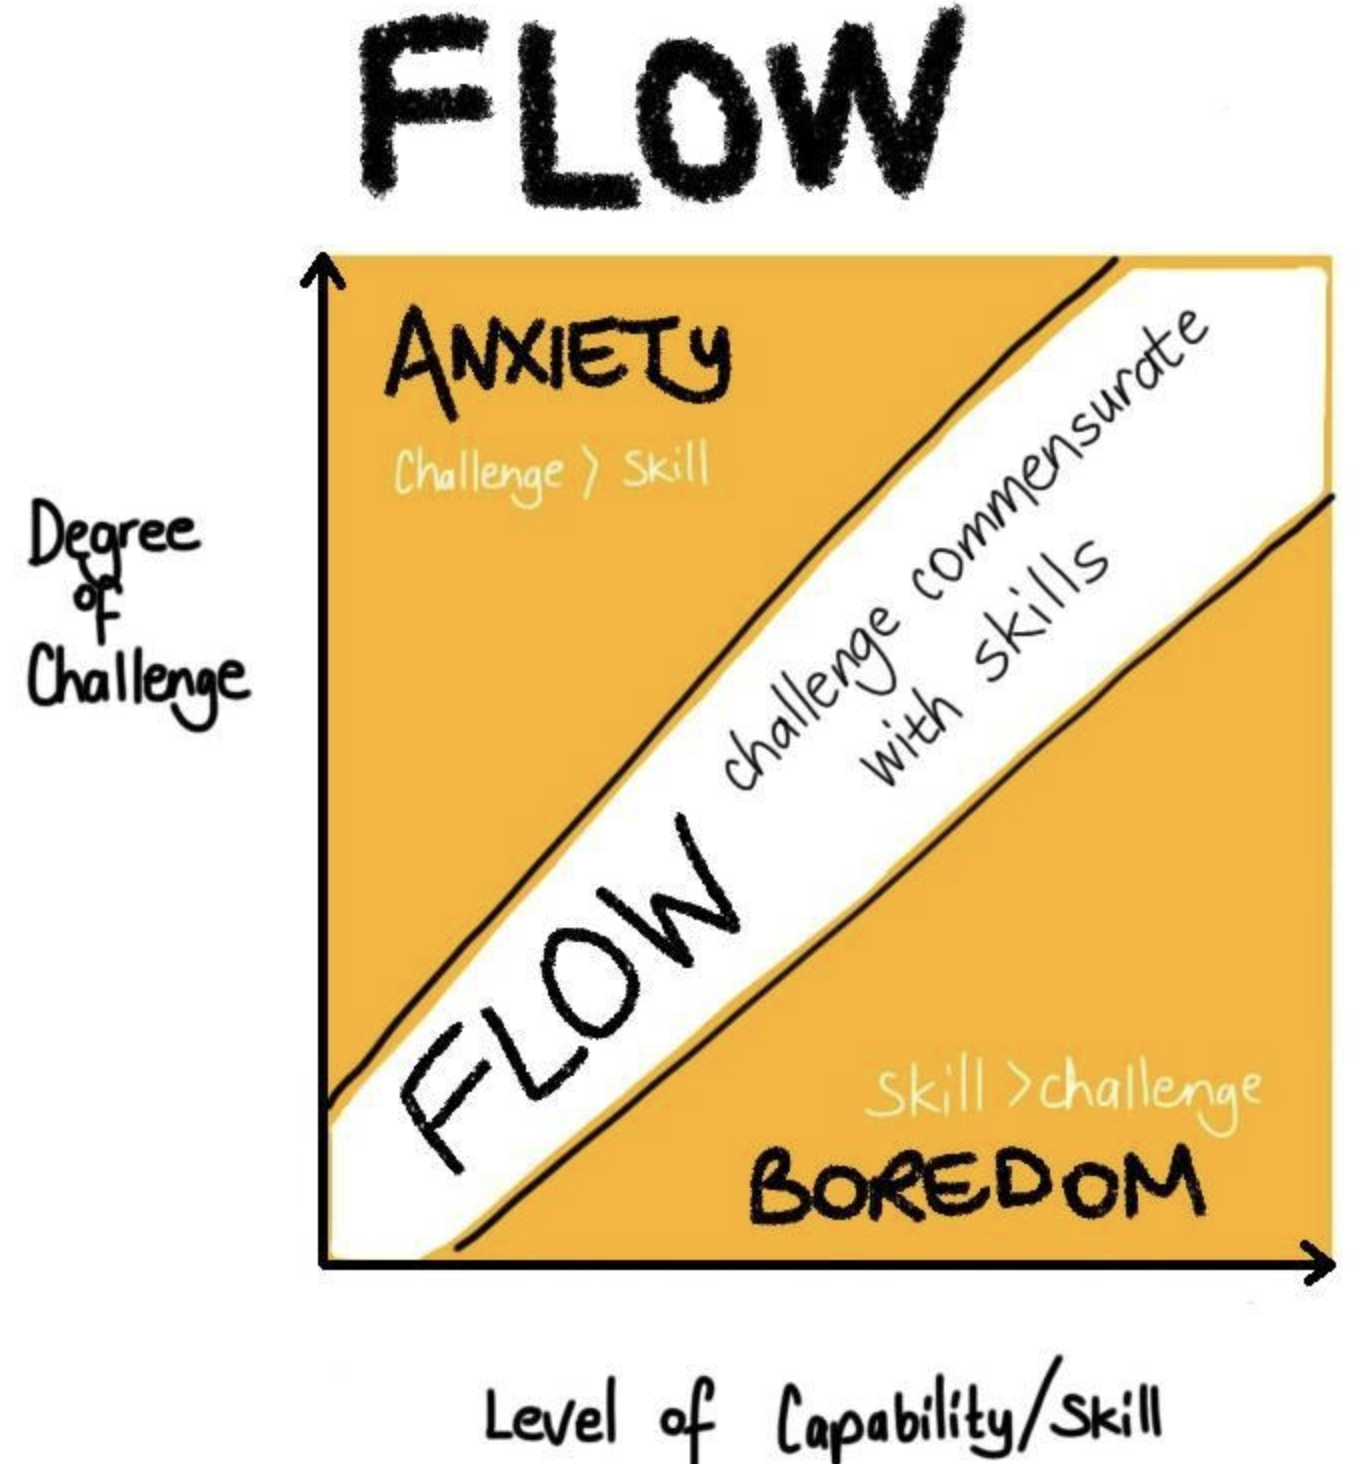 FLOW
ANXIETY
Challenge > Skill
Degree
of
Challenge
challenge commensurate
with skills
FLOW
Skill >challenge
BOREDOM
Level of Capability/Skill